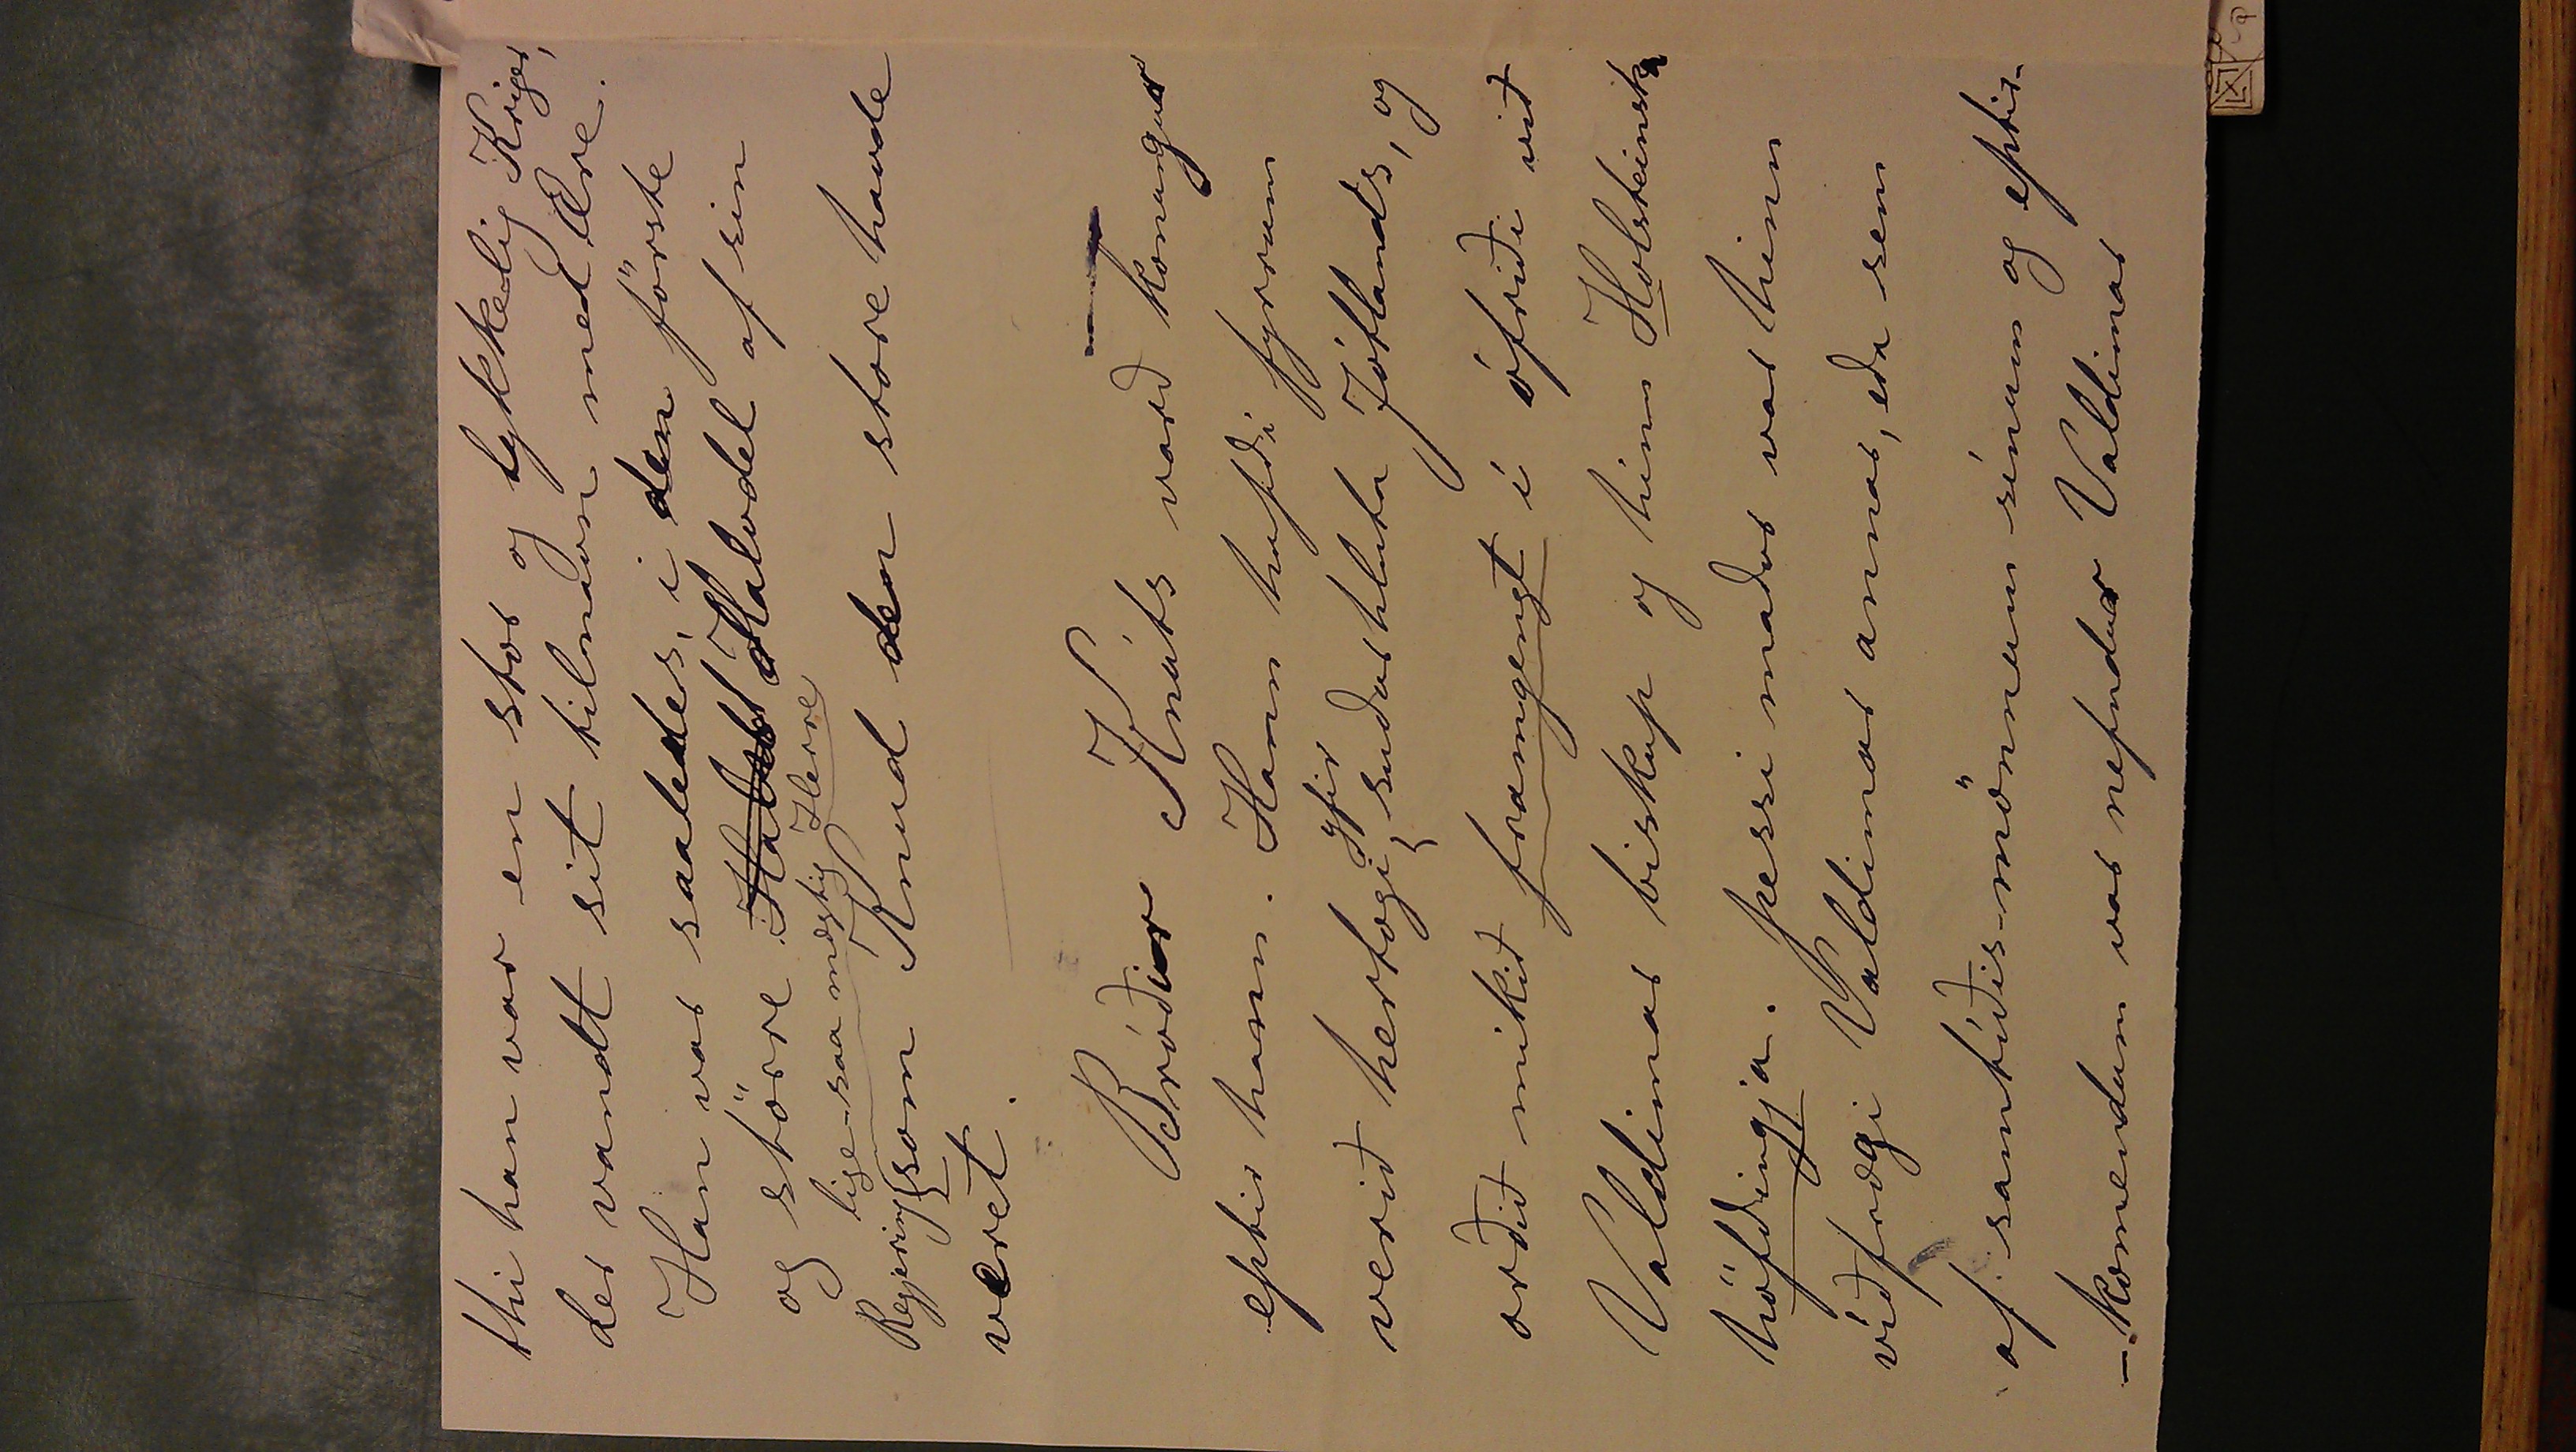 thi han var en stor og lykkelig Kriger,
der vandt sit tilnavn med Ære.
Han var saaledes, i den förste
og större Halvdel af sin
lige-saa mægtig Herre
Regjering som Knud den store havde
været.
Bróðir Knúts varð konungur
eptir hann. Hann hafði fyrrum
yfir
verið hertogi suðurhluta Jótlands, og
orðið mikið framgengt í ófriði við
Valdimar biskup og hinn Holsteinska
höfðingja. þessi maður var hinn
víðfrægi Valdimar annar, eða sem
af samtíðis-mönnum sínum og eptir-
-komendum var nefndur Valdimar